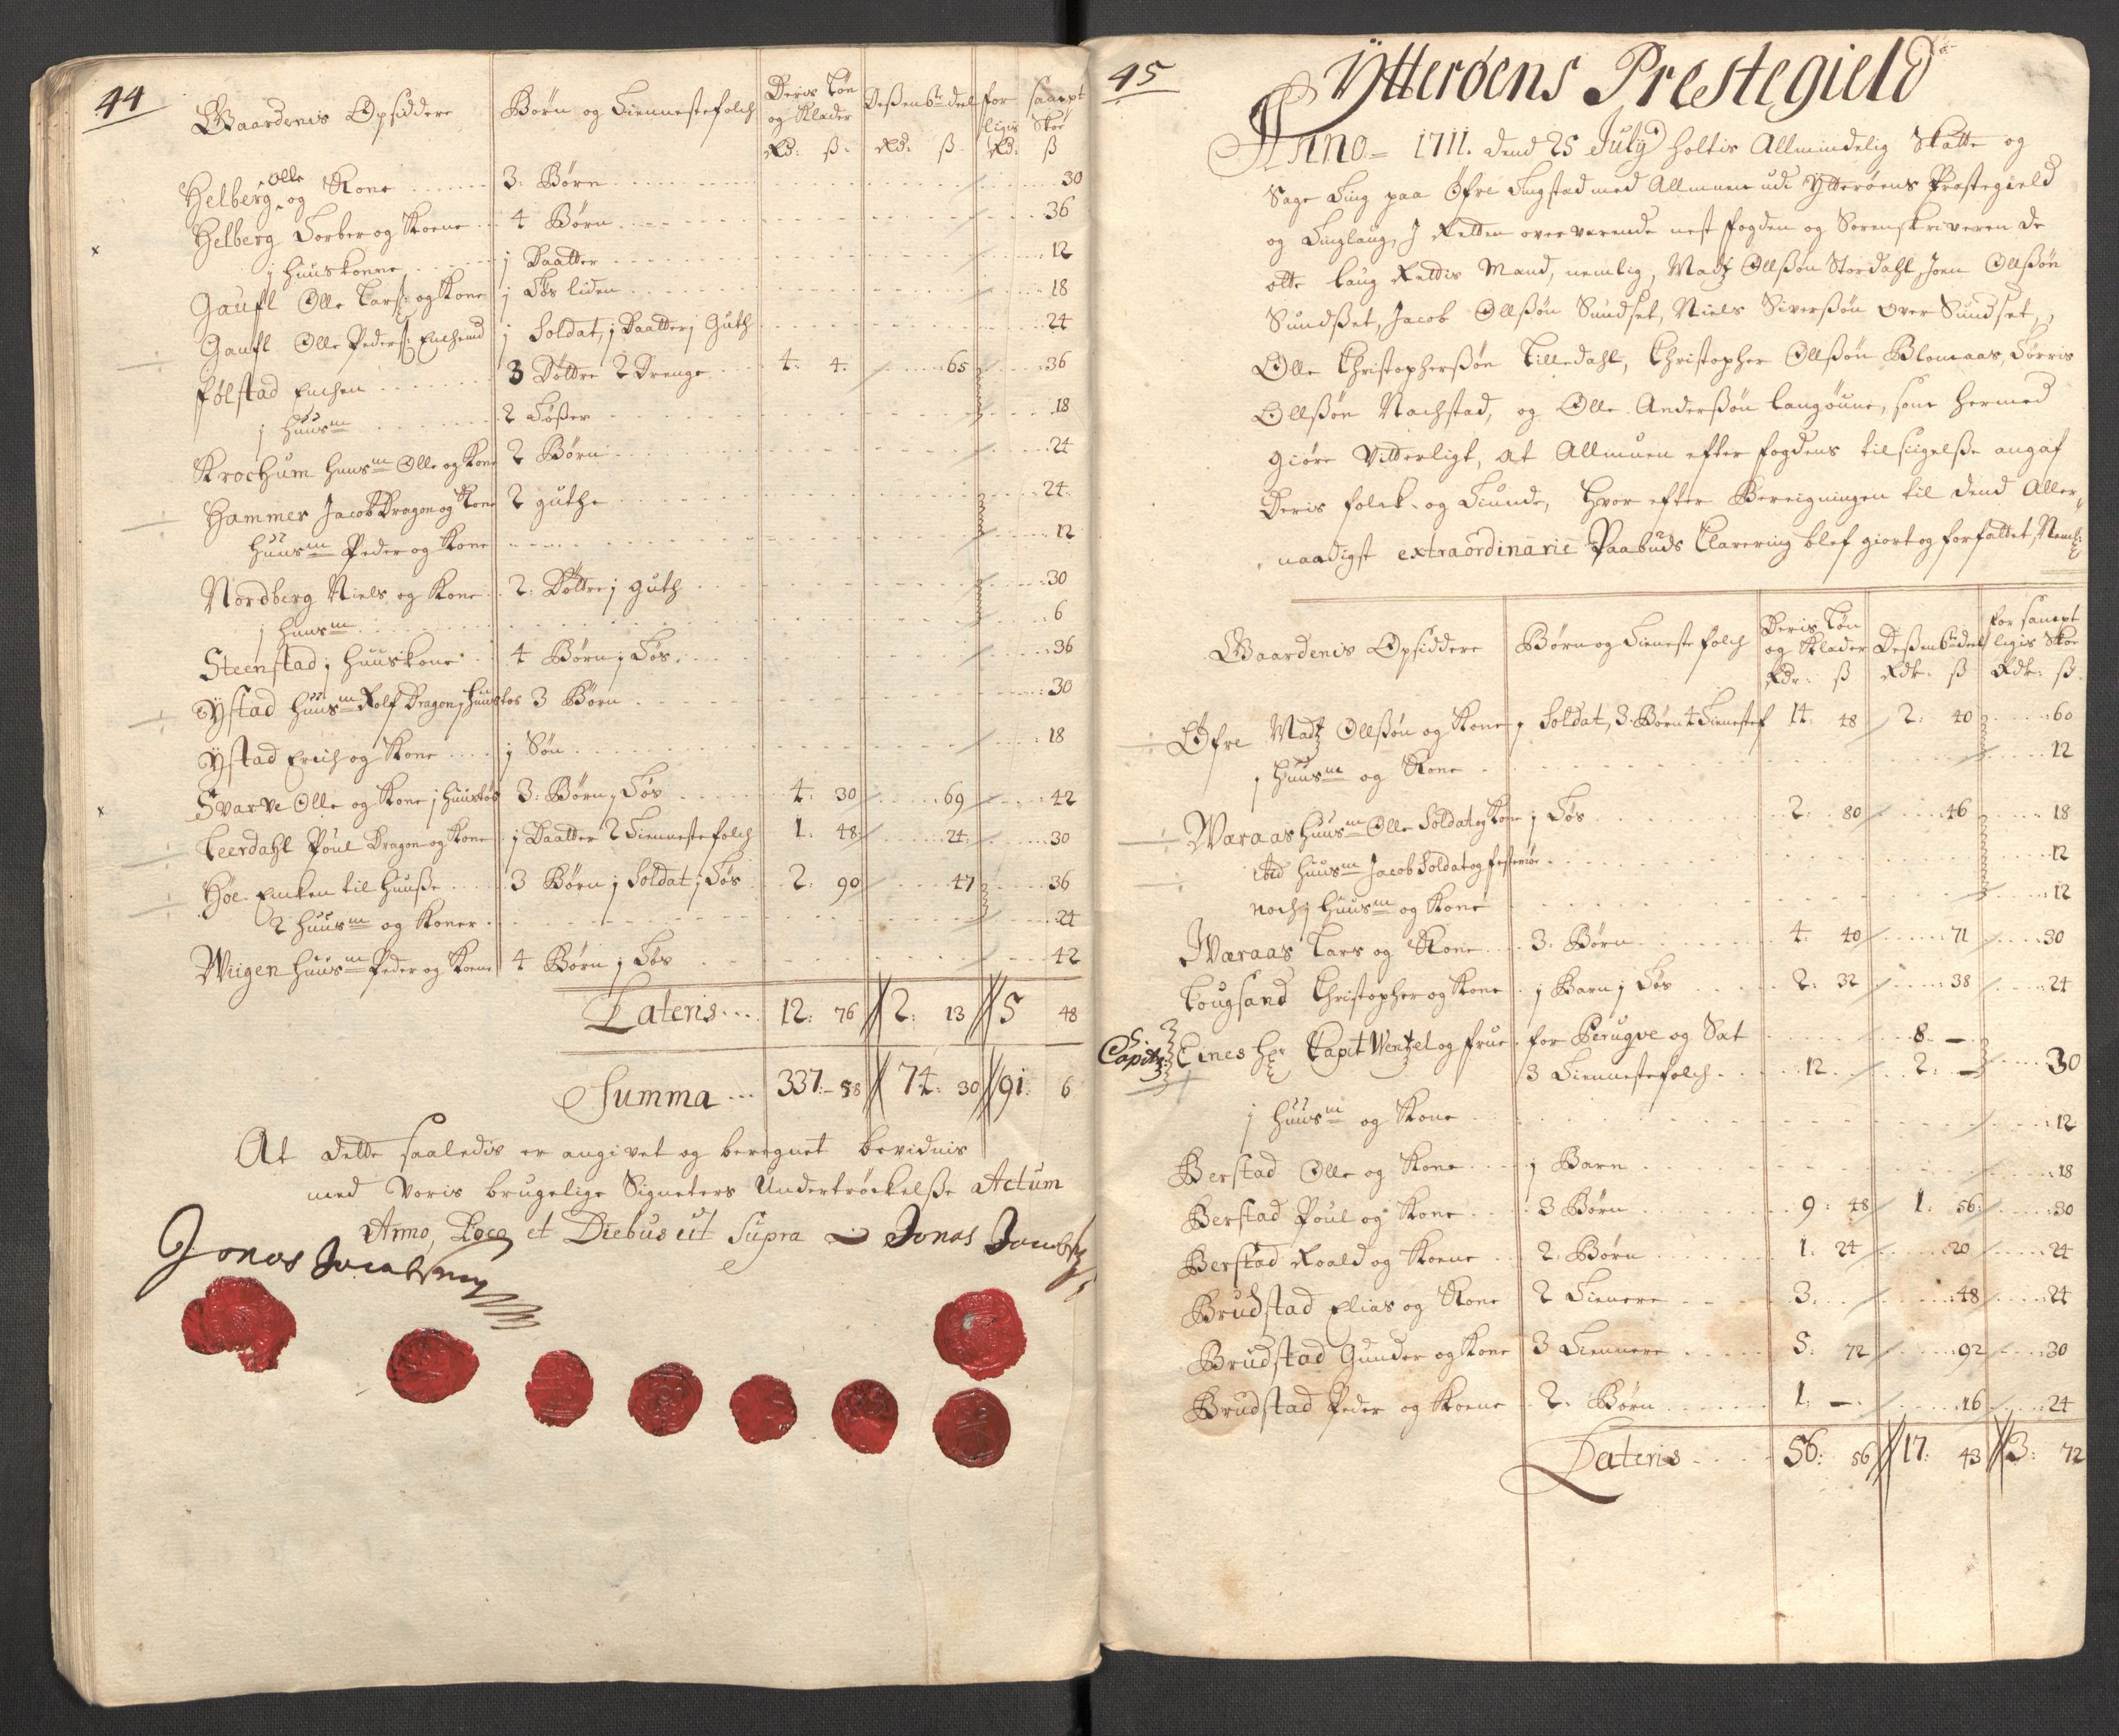 44
Gaardenis Opsiddere Børn og Tiennestefolch Deris Løn og Klæder Deßen 6te deel for samptligis Skoe
Rd: ß. Rd: ß. Rd: ß
Helberg Olle og Kone 3. Børn 30
Helberg Torber og Koene 4 Børn 36
j huuskonne j Daatter 12
Gaufl Olle Larß: og Kone j Tøs liden 18
Gaufl Olle Pederß: Enchemd j Soldat, j Daatter j Guth 24
Følstad Enchen 3 Døttre 2 Drenge 4. 4. 65 36
j huusm 2 Tøßer 18
Krochum huusm Olle og Kone 2 Børn 24
Hammer Jacob Dragon og Kone 2 guthe 24.
huusm Peder og Kone 12
Nordberg Niels og Kone 2: Døttre j guth 30
j huusm 6
Steenstad j huuskone 4 Børn j Tøs. 36
Ÿstad huusm Rolf Dragon j huustøs 3 Børn 30
Ÿstad Erich og Kone j Søn 18
Svarve Olle og Kone j huustøs 3: Børn j Tøs 4: 30 69 42
Leerdahl Poul Dragon og Kone j Daatter 2 Tiennestefolch 1: 48 24. 30
Høe Enken til huuße 3 Børn j Soldat j Tøs 2: 90 47 36
2 huusm og Koner 24
Wiigen huusm Peder og Koene 4 Børn j Tøs 42
Lateris 12: 76 2: 13 5 48
Summa 337:- 58 74: 30 91: 6
At dette saaledis er angivet og beregnet bevidnis
med Voris brugelige Signeters Undertrøckelße Actum
Anno, Loco et Diebus ut Supra Jonas Jacobß
Jonas Jacobßen
45
Ÿtterøens Prestegield
Anno 1711. dend 25 Julÿ holtis Allmindelig Skatte og
Sage Ting paa Øfre Lingstad med Allmuen udi Ÿtterøens Prestegield
og Tinglaug, I Retten overværende nest fogden og Sorenskriveren de
otte laug Rettis Mænd, nemlig, Madz Ollßøn Stordahl, Joen Ollßøn
Sundßet, Jacob Ollßøn Sundset, Niels Siverßøn over Sundset,
Olle Christopherßøn Lilledahl, Christopher Ollßøn Blomaas, Torris
Ollßøn Nachstad, og Olle Anderßøn Langøune, som hermed
giøre Vitterligt, at Allmuen efter fogdens tilsiigelße angaf
Deris folck og Tiunde, hvor efter Bereigningen til dend Aller-
naadigst extraordinarie Paabuds Clarering blef giort og forfattet, Neml:
Gaardenis Opsiddere Børn og Tieneste folch Deris Løn og Klæder Deßen 6te deel for samptligis Skoe
Rdr: ß Rdr: ß Rdr: ß.
Øfre Madz Ollßøn og Kone j Soldat, 3. Børn 4 Tienestef 14: 48 2: 40 60
j huusm og Kone 12
Waraas huusm Olle Soldat og Kone j Tøs 2: 80 46 18
ibid huusm Jacob Soldat og festemøe 12
noch j huusm og Kone 12
Waraas Lars og Kone 3. Børn 4: 40 71 30
Lougsand Christopher og Kone j Barn j Tøs 2: 32 38 24
S. Capit: Eines hr Capit Wentzel og frue for Perugve og Sat 8 -
3 Tiennestefolch 12 2: - 30
j huusm og Kone 12
Berstad Olle og Kone j Barn 18
Berstad Poul og Kone 3 Børn 9: 48 1: 56. 30
Berstad Roald og Koene 2. Børn 1: 24 20 24
Brudstad Elias og Kone 2 Tienere 3. 48 24
Brudstad Gunder og Kone 3 Tiennere 5: 72 92 30
Brudstad Peder og Koene 2. Børn 1: - 16 24
Lateris 56: 56 17: 43 3: 72